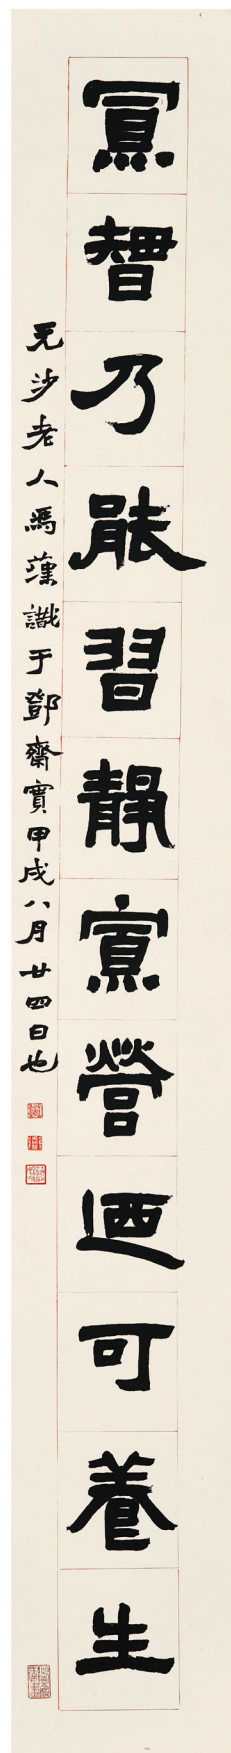 寡智乃能習靜寡營迺可養生
无沙老人馮漢識于鄧齋實甲戌八月廿四日也